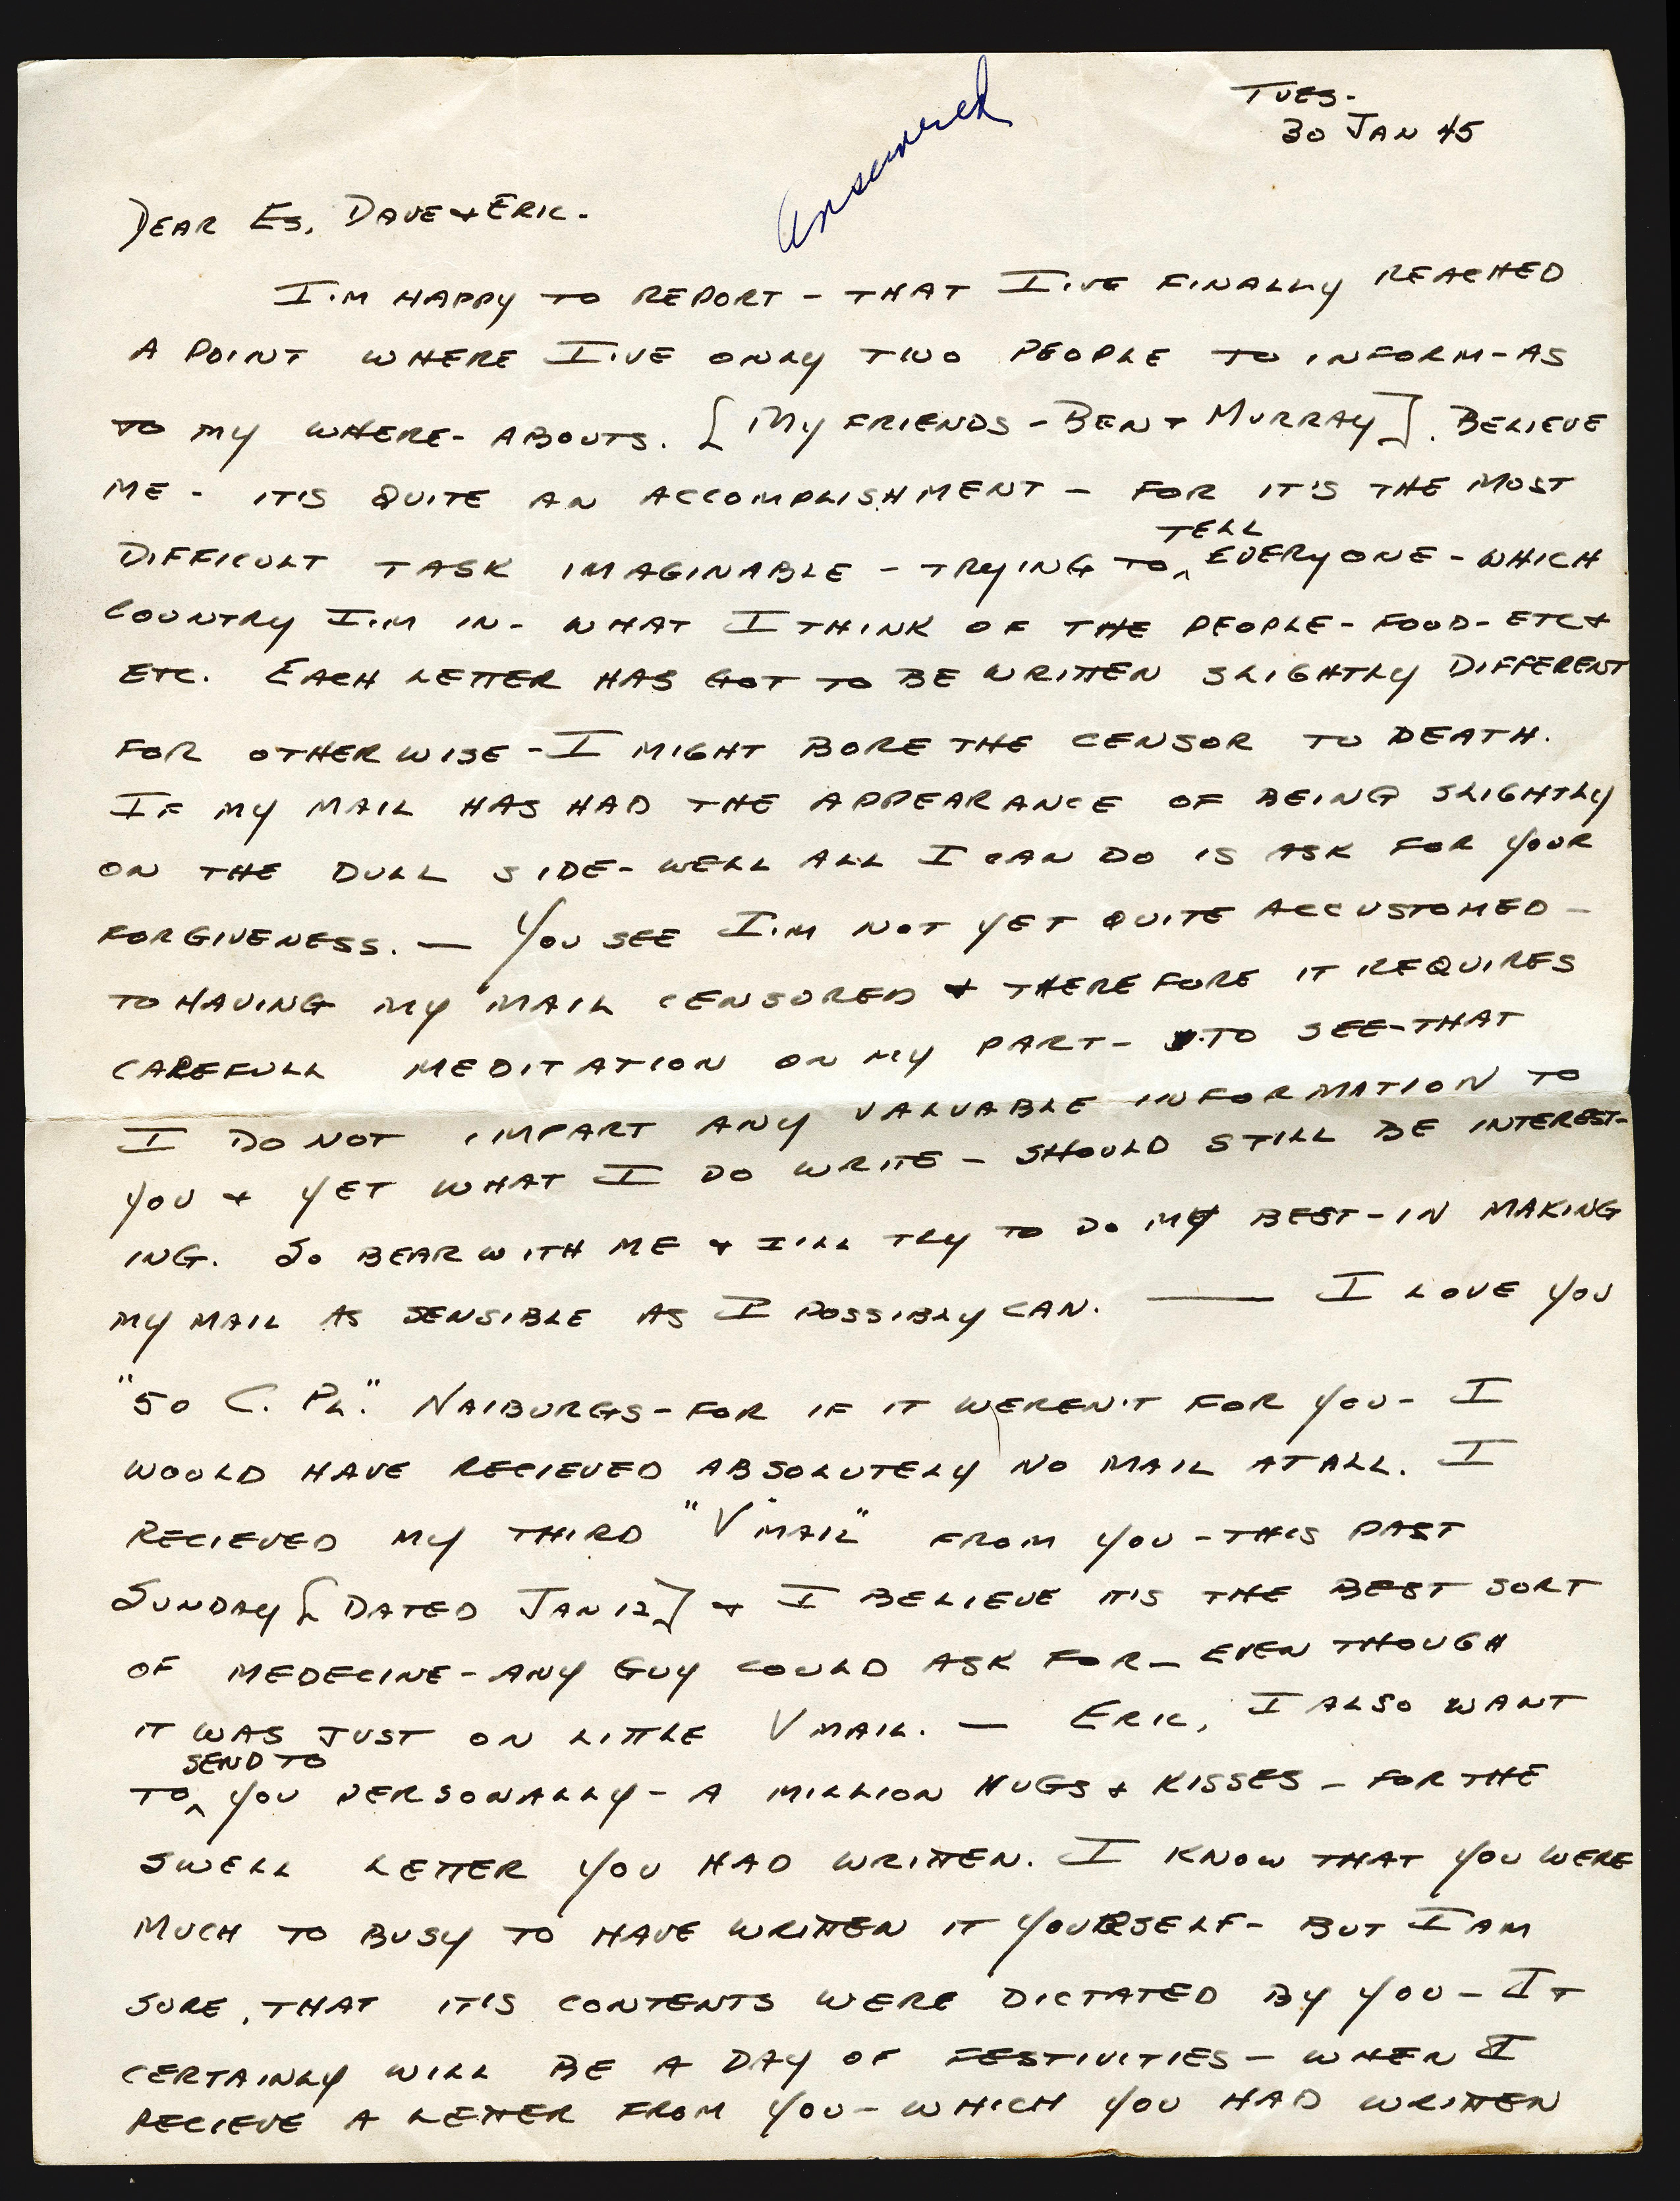 Answered
TUES.
30 JAN 45
DEAR ES, DAVE & ERIC.
I'M HAPPY TO REPORT - THAT I'VE FINALLY REACHED
A POINT WHERE I'VE ONLY TWO PEOPLE TO INFORM - AS
TO MY WHERE-ABOUTS. [MY FRIENDS - BEN & MURRAY]. BELIEVE
ME - IT'S QUITE AN ACCOMPLISHMENT - FOR IT'S THE MOST
TELL
DIFFICULT TASK IMAGINABLE - TRYING TO ^ EVERYONE - WHICH
COUNTRY I'M IN - WHAT I THINK OF THE PEOPLE - FOOD - ETC &
ETC. EACH LETTER HAS GOT TO BE WRITTEN SLIGHTLY DIFFERENT
FOR OTHERWISE - I MIGHT BORE THE CENSOR TO DEATH.
IF MY MAIL HAS HAD THE APPEARANCE OF BEING SLIGHTLY
ON THE DULL SIDE - WELL ALL I CAN DO IS ASK FOR YOUR
FORGIVENESS. — YOU SEE I'M NOT YET QUITE ACCUSTOMED -
TO HAVING MY MAIL CENSORED & THEREFORE IT REQUIRES
CAREFULL MEDITATION ON MY PART - TO SEE - THAT
I DO NOT IMPART ANY VALUABLE INFORMATION TO
YOU & YET WHAT I DO WRITE - SHOULD STILL BE INTEREST-
ING. SO BEAR WITH ME & I'LL TRY TO DO MY BEST - IN MAKING
MY MAIL AS SENSIBLE AS I POSSIBLY CAN. —— I LOVE YOU
"50 C. PL." NAIBURGS - FOR IF IT WEREN'T FOR YOU - I
WOULD HAVE RECIEVED ABSOLUTELY NO MAIL AT ALL. I
RECIEVED MY THIRD "V MAIL" FROM YOU - THIS PAST
SUNDAY [DATED JAN 12] & I BELIEVE IT'S THE BEST SORT
OF MEDECINE - ANY GUY COULD ASK FOR - EVEN THOUGH
IT WAS JUST ON LITTLE V MAIL. — ERIC, I ALSO WANT
SEND TO
TO ^ YOU PERSONALLY - A MILLION HUGS & KISSES - FOR THE
SWELL LETTER YOU HAD WRITTEN. I KNOW THAT YOU WERE
MUCH TO BUSY TO HAVE WRITTEN IT YOURSELF - BUT I AM
SURE, THAT IT'S CONTENTS WERE DICTATED BY YOU - IT
CERTAINLY WILL BE A DAY OF FESTIVITIES - WHEN I
RECIEVE A LETTER FROM YOU - WHICH YOU HAD WRITTEN